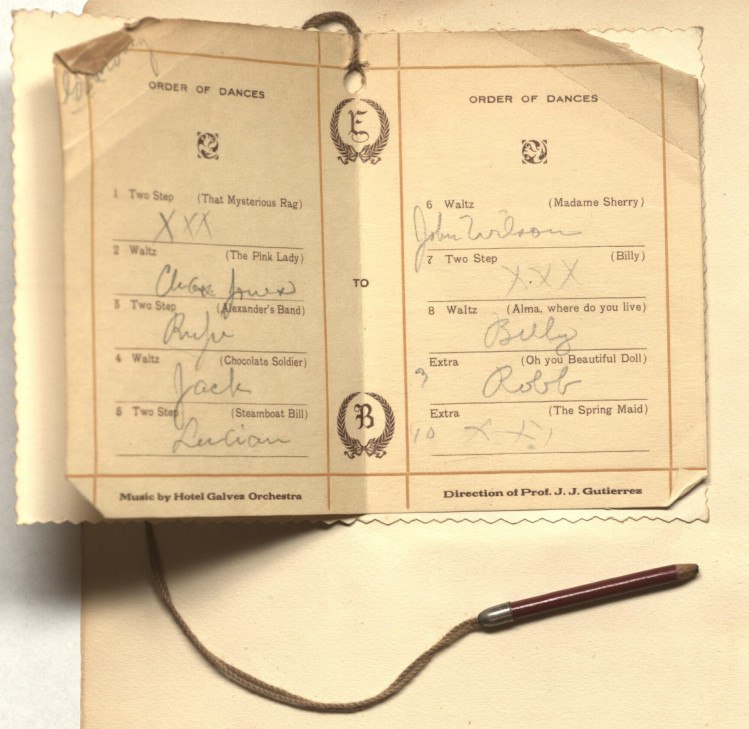 ORDER OF DANCES
1 Two Step (That Mysterious Rag)
XXX
2 Waltz (The Pink Lady)
Jones
3 Two Step (Alexander's Band)
4 Waltz (Chocolate Soldier)
Jack
5 Two Step (Steamboat Bill)
Lucian
Music by Hotel Galvez Orchestra
E
TO
B
ORDER OF DANCES
6 Waltz (Madame Sherry)
John Wilson
7 Two Step (Billy)
XXX
8 Waltz (Alma, where do you live)
Billy
9 Extra (Oh you Beautiful Doll)
Robb
10 Extra (The Spring Maid)
Direction of Prof. J. J. Gutierrez